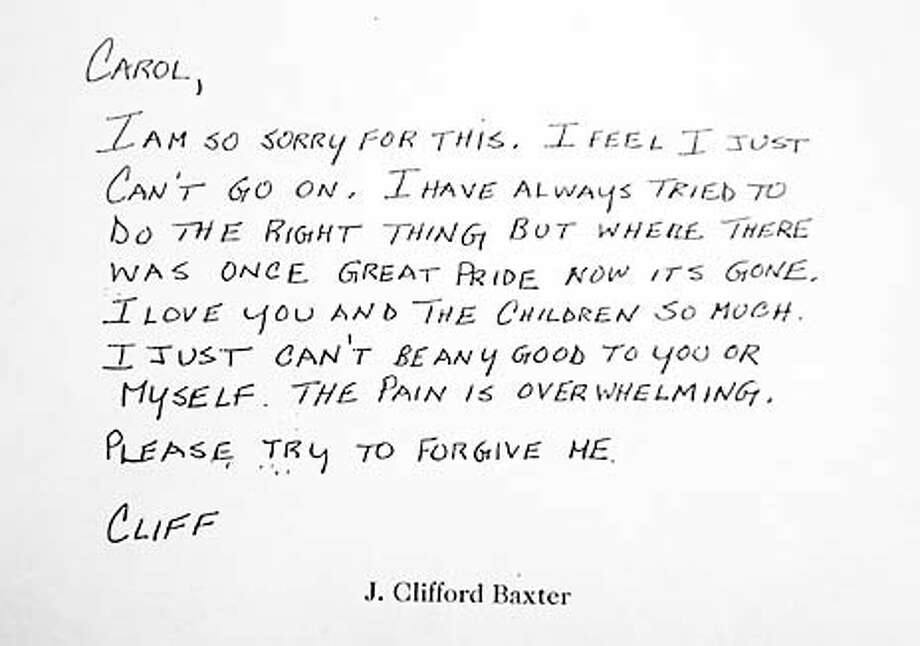 CAROL,
I AM SO SORRY FOR THIS. I FEEL I JUST
CAN'T GO ON. I HAVE ALWAYS TRIED TO
DO THE RIGHT THING BUT WHERE THERE
WAS ONCE GREAT PRIDE NOW ITS GONE.
I LOVE YOU AND THE CHILDREN SO MUCH.
I JUST CAN'T BE ANY GOOD TO YOU OR
MYSELF. THE PAIN IS OVERWHELMING.
PLEASE TRY TO FORGIVE ME.
CLIFF
J. Clifford Baxter